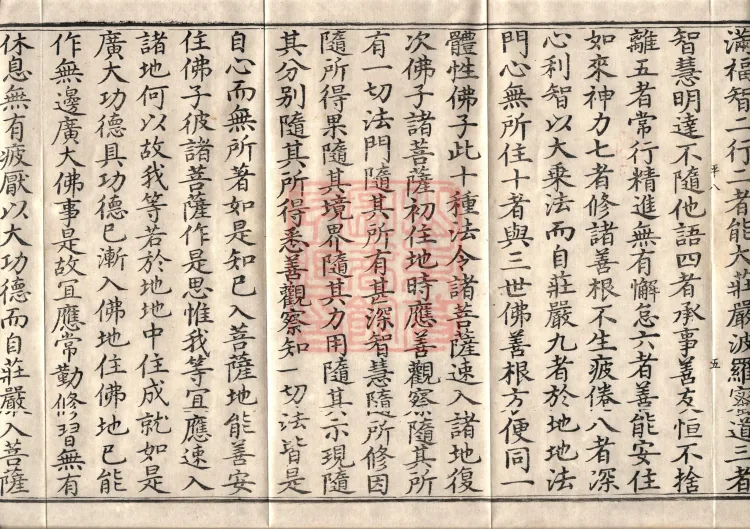 滿福智二行二者能大莊嚴波羅蜜道三者
平八 五
智慧明達不隨他語四者承事善友恒不捨
離五者常行精進無有懈怠六者善能安住
如來神力七者修諸善根不生疲倦八者深
心利智以大乘法而自莊嚴九者於地地法
門心無所住十者與三世佛善根方便同一
體性佛子此十種法令諸菩薩速入諸地復
次佛子諸菩薩初住地時應善觀察隨其所
有一切法門隨其所有甚深智慧隨所修因
隨所得果隨其境界隨其力用隨其示現隨
其分別隨其所得悉善觀察知一切法皆是
自心而無所著如是知已入菩薩地能善安
住佛子彼諸菩薩作是思惟我等宜應速入
諸地何以故我等若於地地中住成就如是
廣大功德具功德已漸入佛地住佛地已能
作無邊廣大佛事是故宜應常勤修習無有
休息無有疲厭以大功德而自莊嚴入菩薩